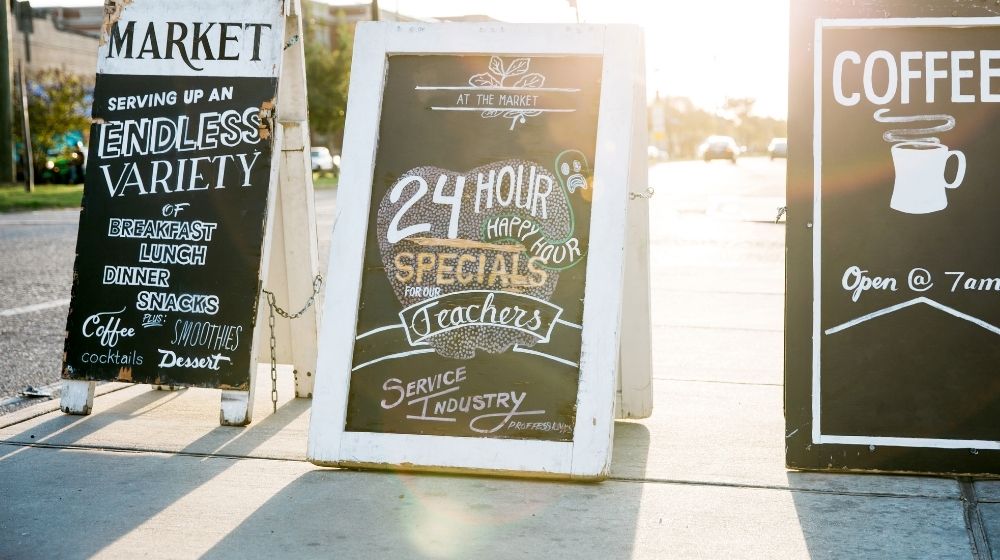 MARKET
SERVING UP AN
ENDLESS
VARIETY
OF
BREAKFAST
LUNCH
DINNER
SNACKS
PLUS:
Coffee SMOOTHIES
cocktails Dessert
AT THE MARKET
24 HOUR
HAPPY HOUR
SPECIALS
FOR OUR
Teachers
SERVICE
INDUSTRY
PROFFESSIONALS
COFFEE
Open @ 7am